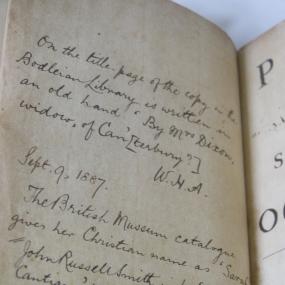 On the title-page of the copy in the
Bodleian Library is written in
an old hand "By Mrs Dixon,
widow, of Can[terbury?]
W. H. A.
Sept. 9, 1887.
The British Museum catalogue
gives her Christian name as "Sarah
John Russell Smith
P
S
O